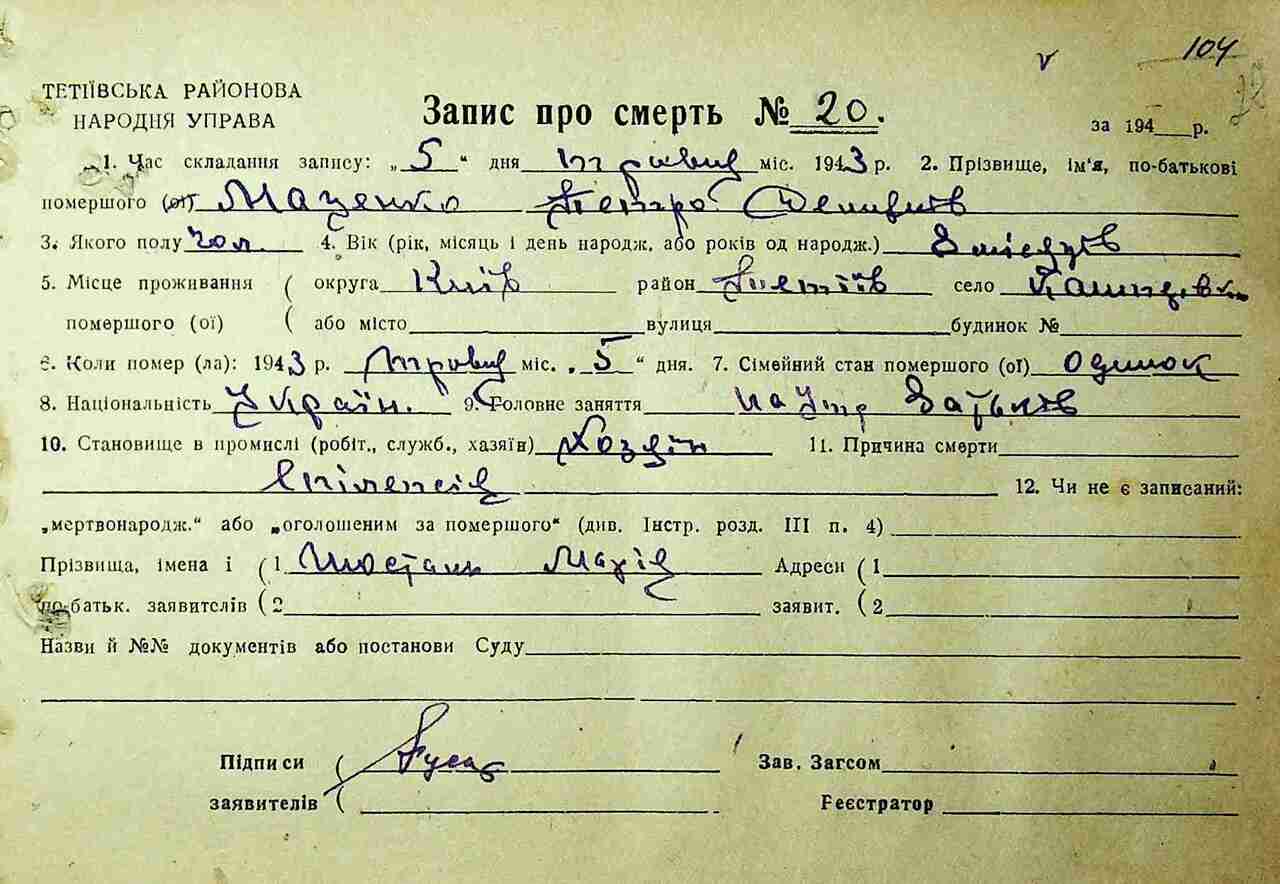 104
ТЕТІЇВСЬКА РАЙОНОВА
НАРОДНЯ УПРАВА
Запис про смерть № 20.
за 194___р.
1. Час складання запису: „5“ дня травня міс. 1943 р. 2. Прізвище, ім‘я, по-батькові
помершого (ої) Маценко Петро
3. Якого полу чол. 4. Вік (рік, місяць і день народж. або років од народж.) 8 місяців
5. Місце проживання ( округа Київ район Тетіїв село
помершого (ої) ( або місто вулиця будинок №
6. Коли помер (ла): 1943 р. травня міс. „5“ дня. 7. Сімейний стан помершого (ої) одинок
8. Національність Україн. 9. Головне заняття на утр батьків
10. Становище в промислі (робіт., служб., хазяїн) Хозяїн 11. Причина смерти
Епілепсія 12. Чи не є записаний:
„мертвонародж.“ або „оголошеним за помершого“ (див. Інстр. розд. III п. 4)
Прізвища, імена і (1 Шостак Марія Адреси (1
по-батьк. заявителів (2 заявит. (2
Назви й №№ документів або постанови Суду
Підписи ( Зав. Загсом
заявителів ( Реєстратор